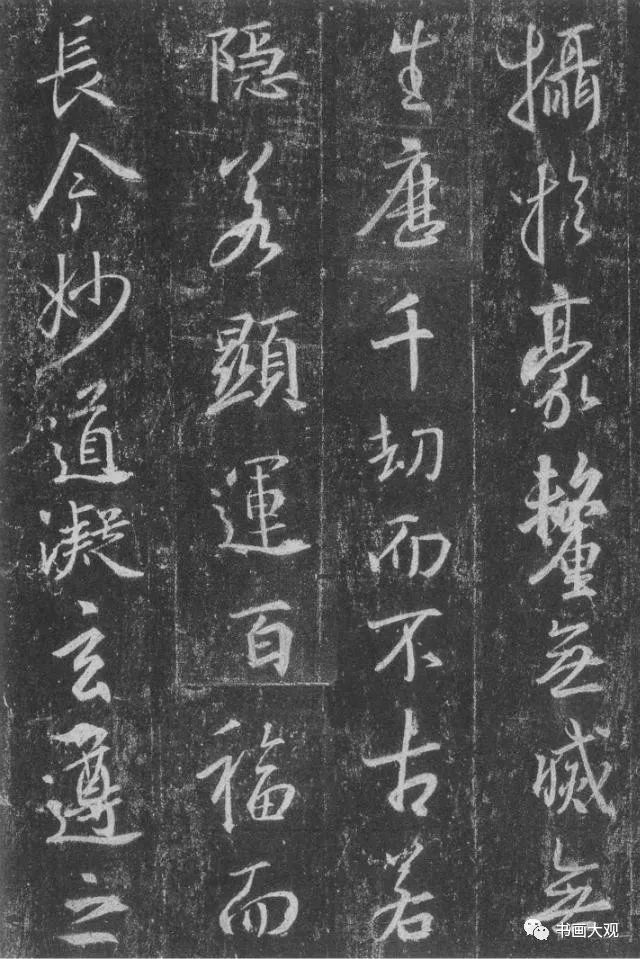 攝於豪氂無滅無
生歷千劫而不古若
隱若顯運百福而
長今妙道凝玄遵之
书画大观